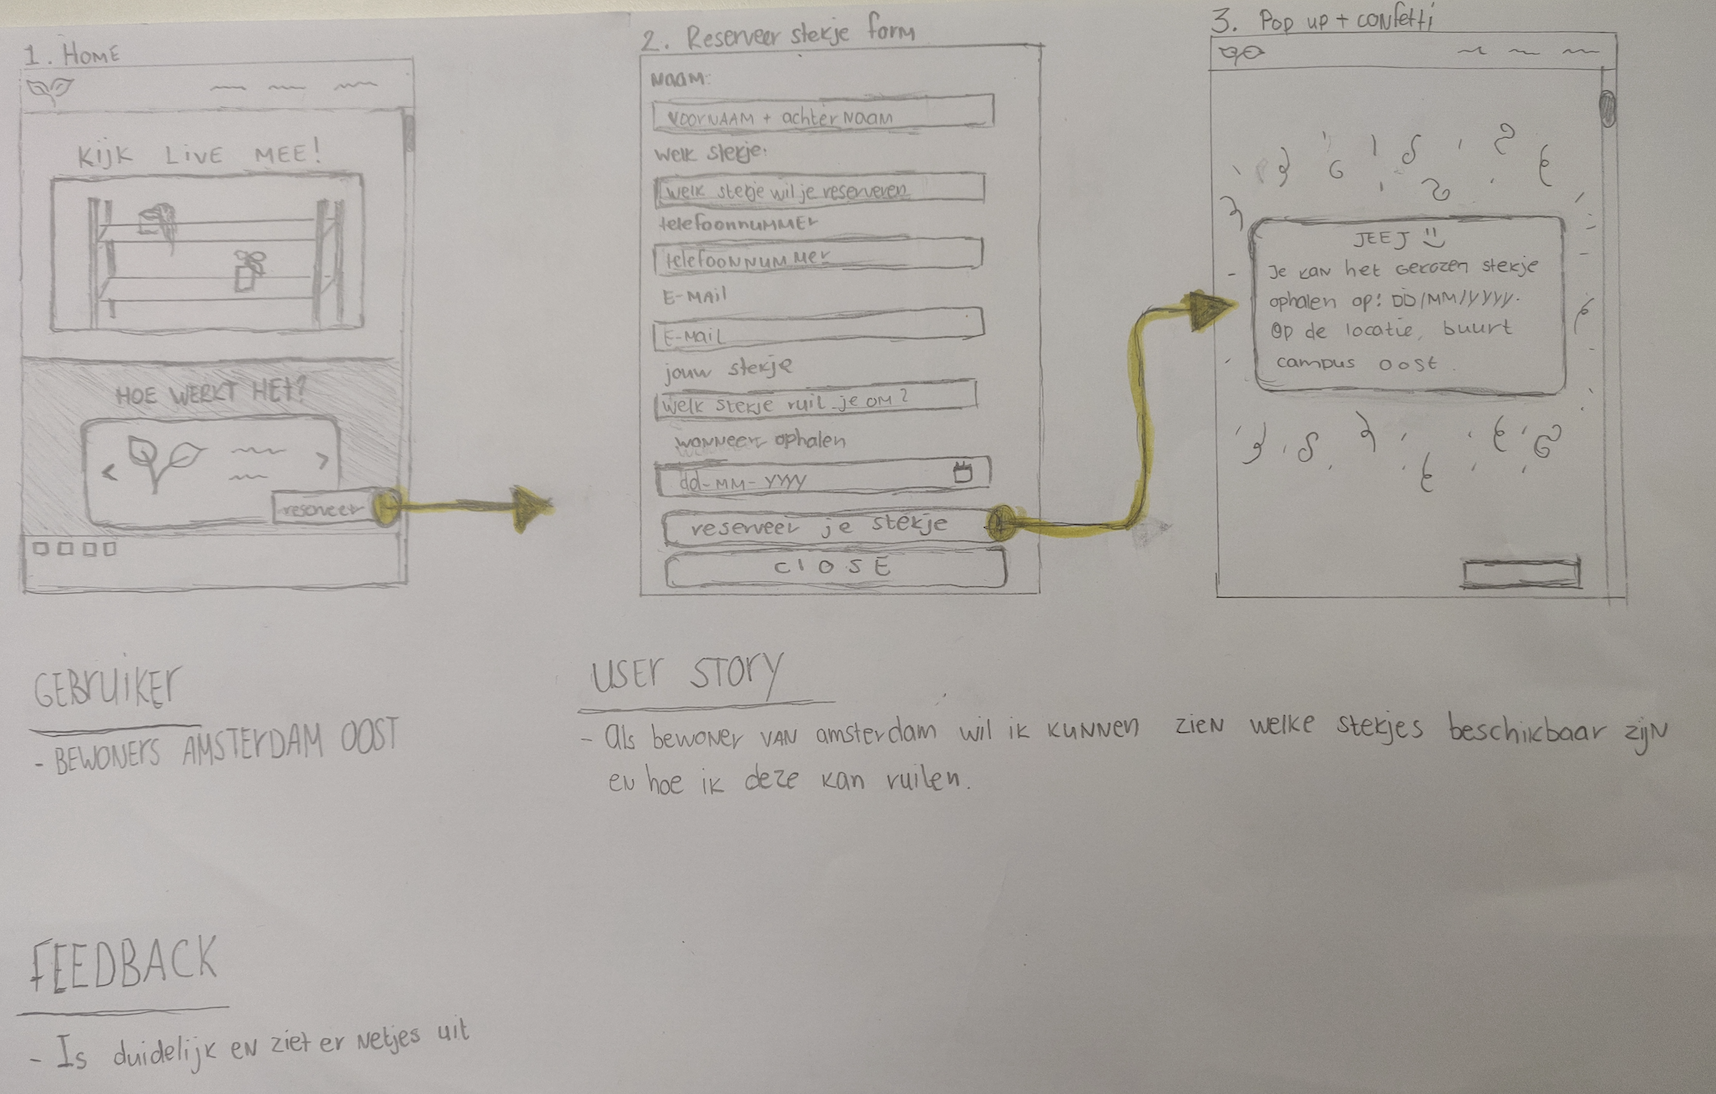 1. Home
KIJK LIVE MEE!
HOE WERKT HET?
<
>
reserveer
2. Reserveer stekje form
Naam:
VOORNAAM + achterNaam
welk stekje:
welk stekje wil je reserveren
telefoonnummer
telefoonnummer
E-mail
E-mail
jouw stekje
welk stekje ruil je om?
wanneer ophalen
dd-MM-yyyy
reserveer je stekje
CLOSE
3. Pop up + confetti
JEEJ
Je kan het gekozen stekje
ophalen op: DD/MM/YYYY.
Op de locatie, buurt
campus oost.
GEBRUIKER
- BEWONERS AMSTERDAM OOST
USER STORY
- Als bewoner van amsterdam wil ik kunnen zien welke stekjes beschikbaar zijn
en hoe ik deze kan ruilen.
FEEDBACK
- Is duidelijk en ziet er netjes uit